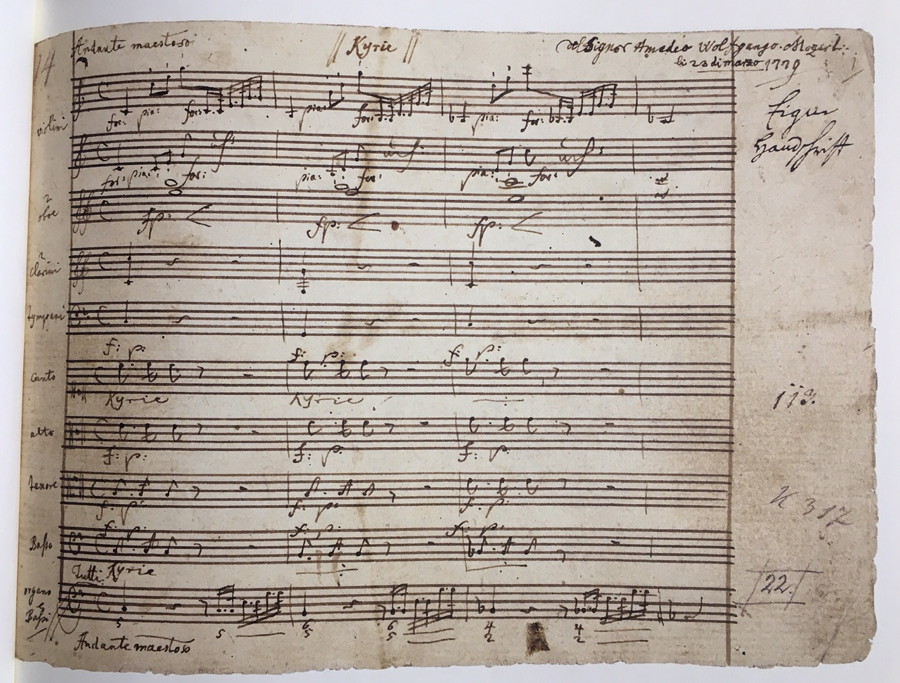 Andante maestoso Kyrie del Signor Amadeo Wolfgango Mozart.
li 23 di marzo 1779
Eigne
Handschrift
violini
for: pia: for: pia: for: pia: for:
for: pia: for: pia: for: pia: for:
2
oboe
fp: fp: fp:
2
clarini
tympani
f: p: f: p: f: p:
Canto
Kyrie Kyrie
alto
f: p: f: p: f: p:
113.
tenore
f: p: f: p:
K 317
f: p: f: p: f: p:
Basso
Tutti Kyrie
organo
e
Bassi
22.
5 6 5 6 5 4 2 4 2
Andante maestoso